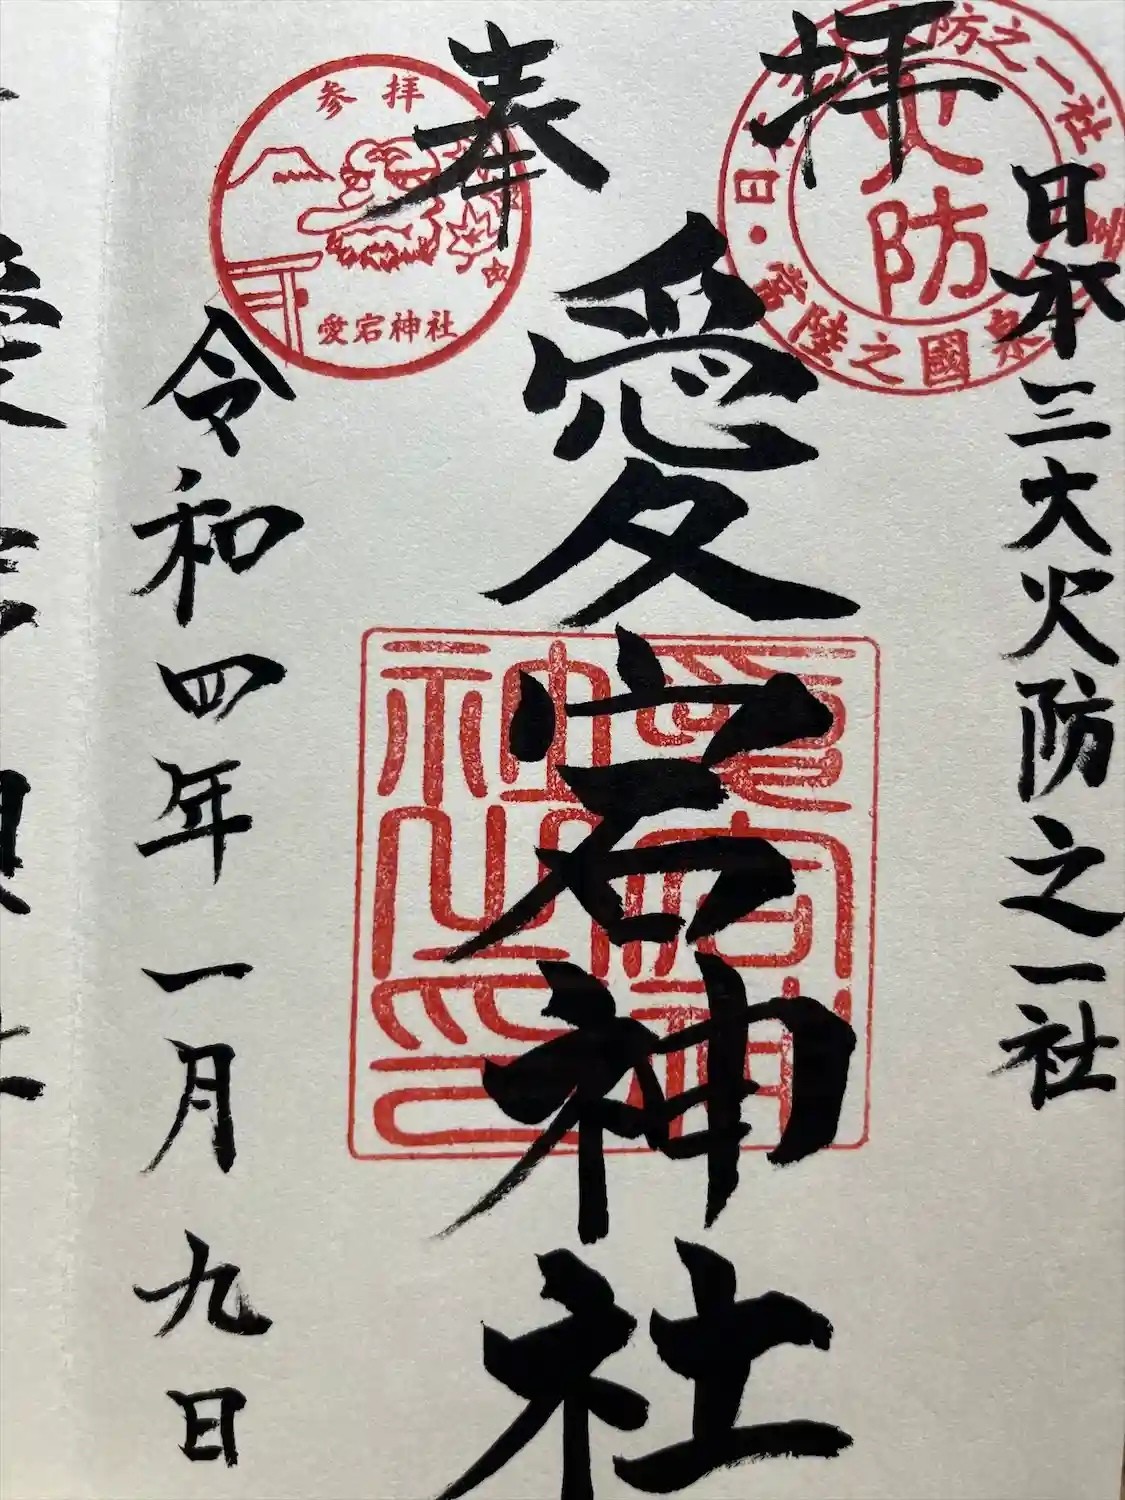 奉拝
日本三大火防之一社
愛宕神社
令和四年一月九日
参拝
愛宕神社
火防
防之一社
日
常陸之國